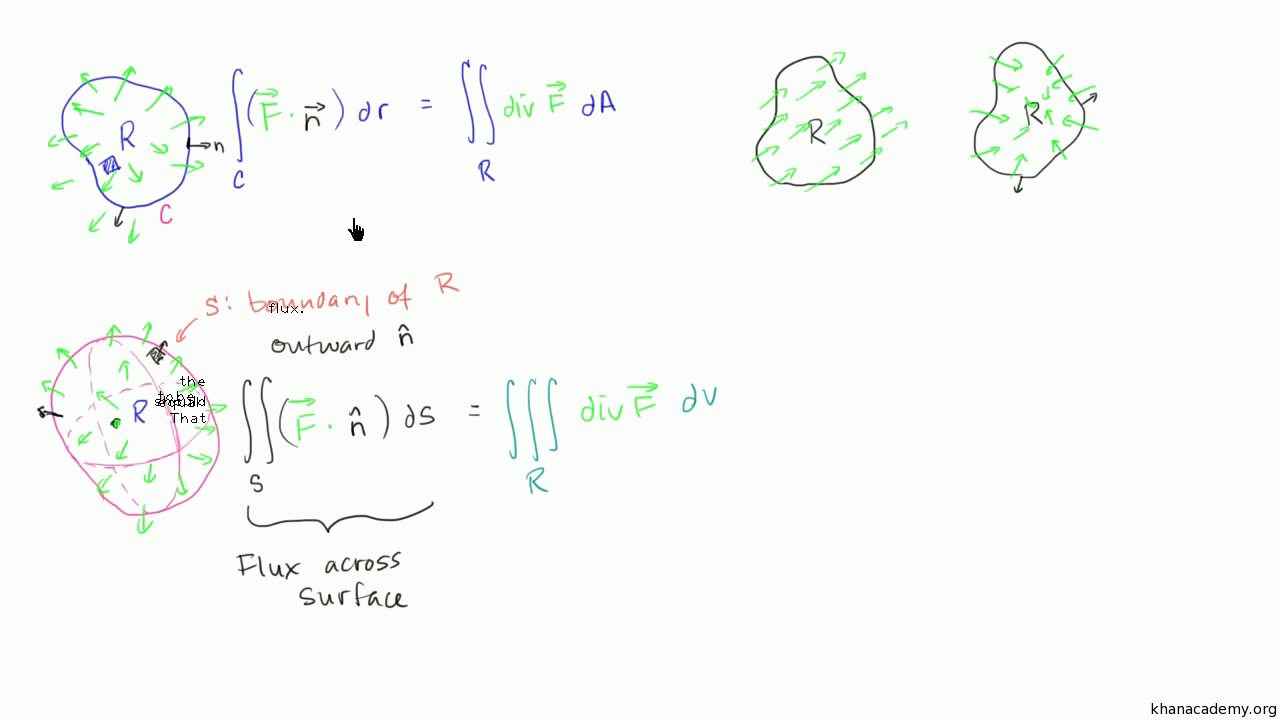 R
n
C
∫ (F⃗ · n⃗) dr = ∬ div F⃗ dA
C
R
R
R
S: boundary of R
flux.
outward n̂
the
That
R
∬ (F⃗ · n̂) dS = ∭ div F⃗ dV
S
R
Flux across
surface
khanacademy.org